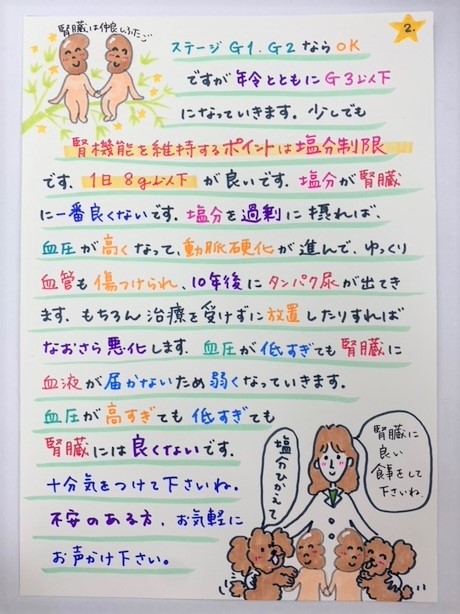 腎臓は仲良しふたご
2.
ステージG1.G2ならOK
ですが年令とともにG3以下
になっていきます。少しでも
腎機能を維持するポイントは塩分制限
です。1日8g以下が良いです。塩分が腎臓
に一番良くないです。塩分を過剰に摂れば、
血圧が高くなって、動脈硬化が進んで、ゆっくり
血管も傷つけられ、10年後にタンパク尿が出てき
ます。もちろん治療を受けずに放置したりすれば
なおさら悪化します。血圧が低すぎても腎臓に
血液が届かないため弱くなっていきます。
血圧が高すぎても低すぎても
腎臓には良くないです。
十分気をつけて下さいね。
不安のある方、お気軽に
お声かけ下さい。
塩分ひかえて
腎臓に
良い
食事をして
下さいね。